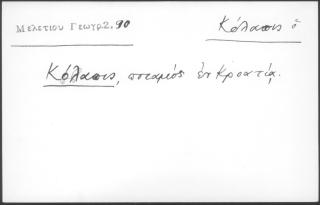 Μελετίου Γεωγρ.2.90
Κόλαπις ὁ
Κόλαπις, ποταμὸς ἐν Κροατίᾳ.